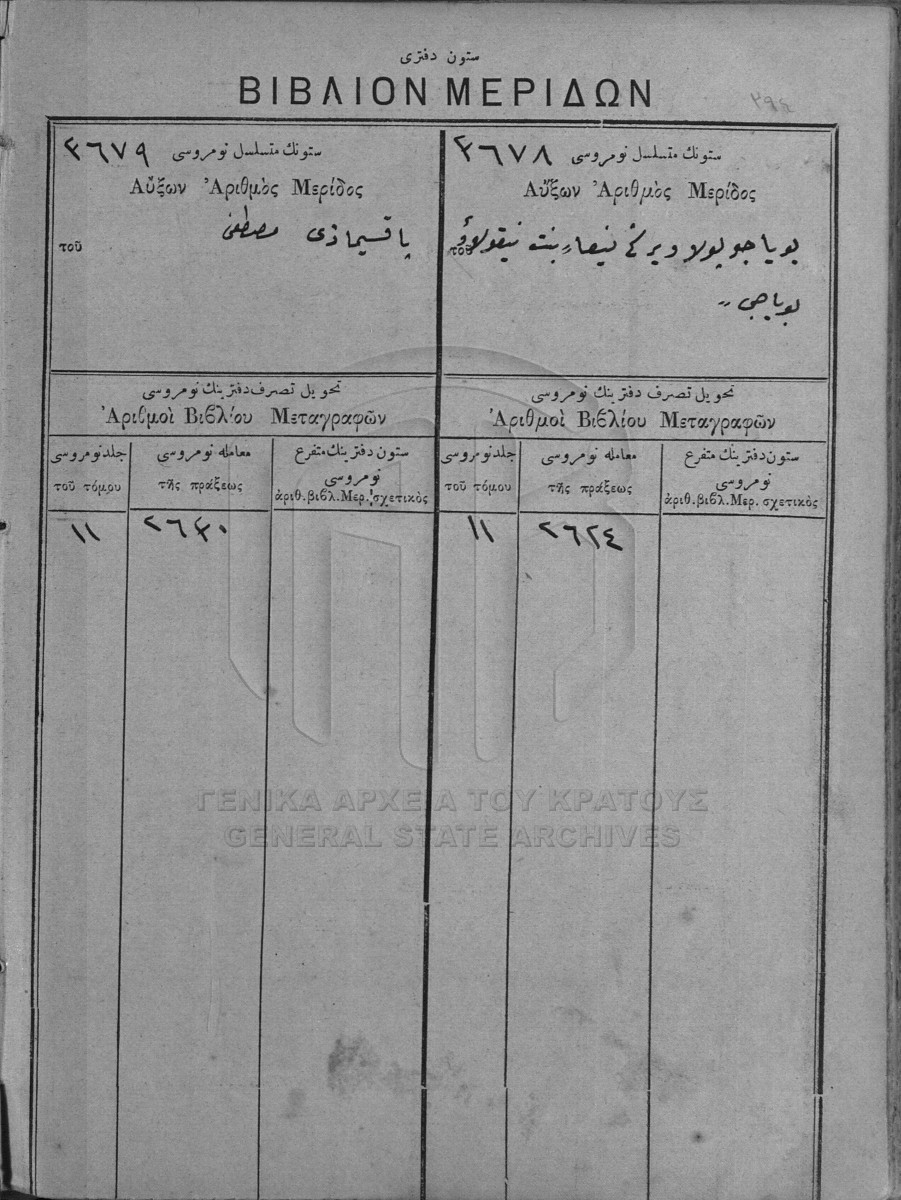 ستون دفتری
ΒΙΒΛΙΟΝ ΜΕΡΙΔΩΝ
٢٩٤
ستونك متسلسل نومروسی ٣٦٧٨
Αὔξων Ἀριθμὸς Μερίδος
τοῦ
بویاجوپولا ویرکی بنت نیقولاؤ
بویاجی
تحویل تصرف دفترینك نومروسی
Ἀριθμοὶ Βιβλίου Μεταγραφῶν
ستون دفترینك متفرع نومروسی
ἀριθ. βιβλ. Μερ. σχετικὸς
معامله نومروسی
τῆς πράξεως
جلد نومروسی
τοῦ τόμου
٢٦٢٤
١١
ستونك متسلسل نومروسی ٣٦٧٩
Αὔξων Ἀριθμὸς Μερίδος
τοῦ
پاقسیمازی مصطفی
تحویل تصرف دفترینك نومروسی
Ἀριθμοὶ Βιβλίου Μεταγραφῶν
ستون دفترینك متفرع نومروسی
ἀριθ. βιβλ. Μερ. σχετικὸς
معامله نومروسی
τῆς πράξεως
جلد نومروسی
τοῦ τόμου
٢٦٣٠
١١
ΓΕΝΙΚΑ ΑΡΧΕΙΑ ΤΟΥ ΚΡΑΤΟΥΣ
GENERAL STATE ARCHIVES